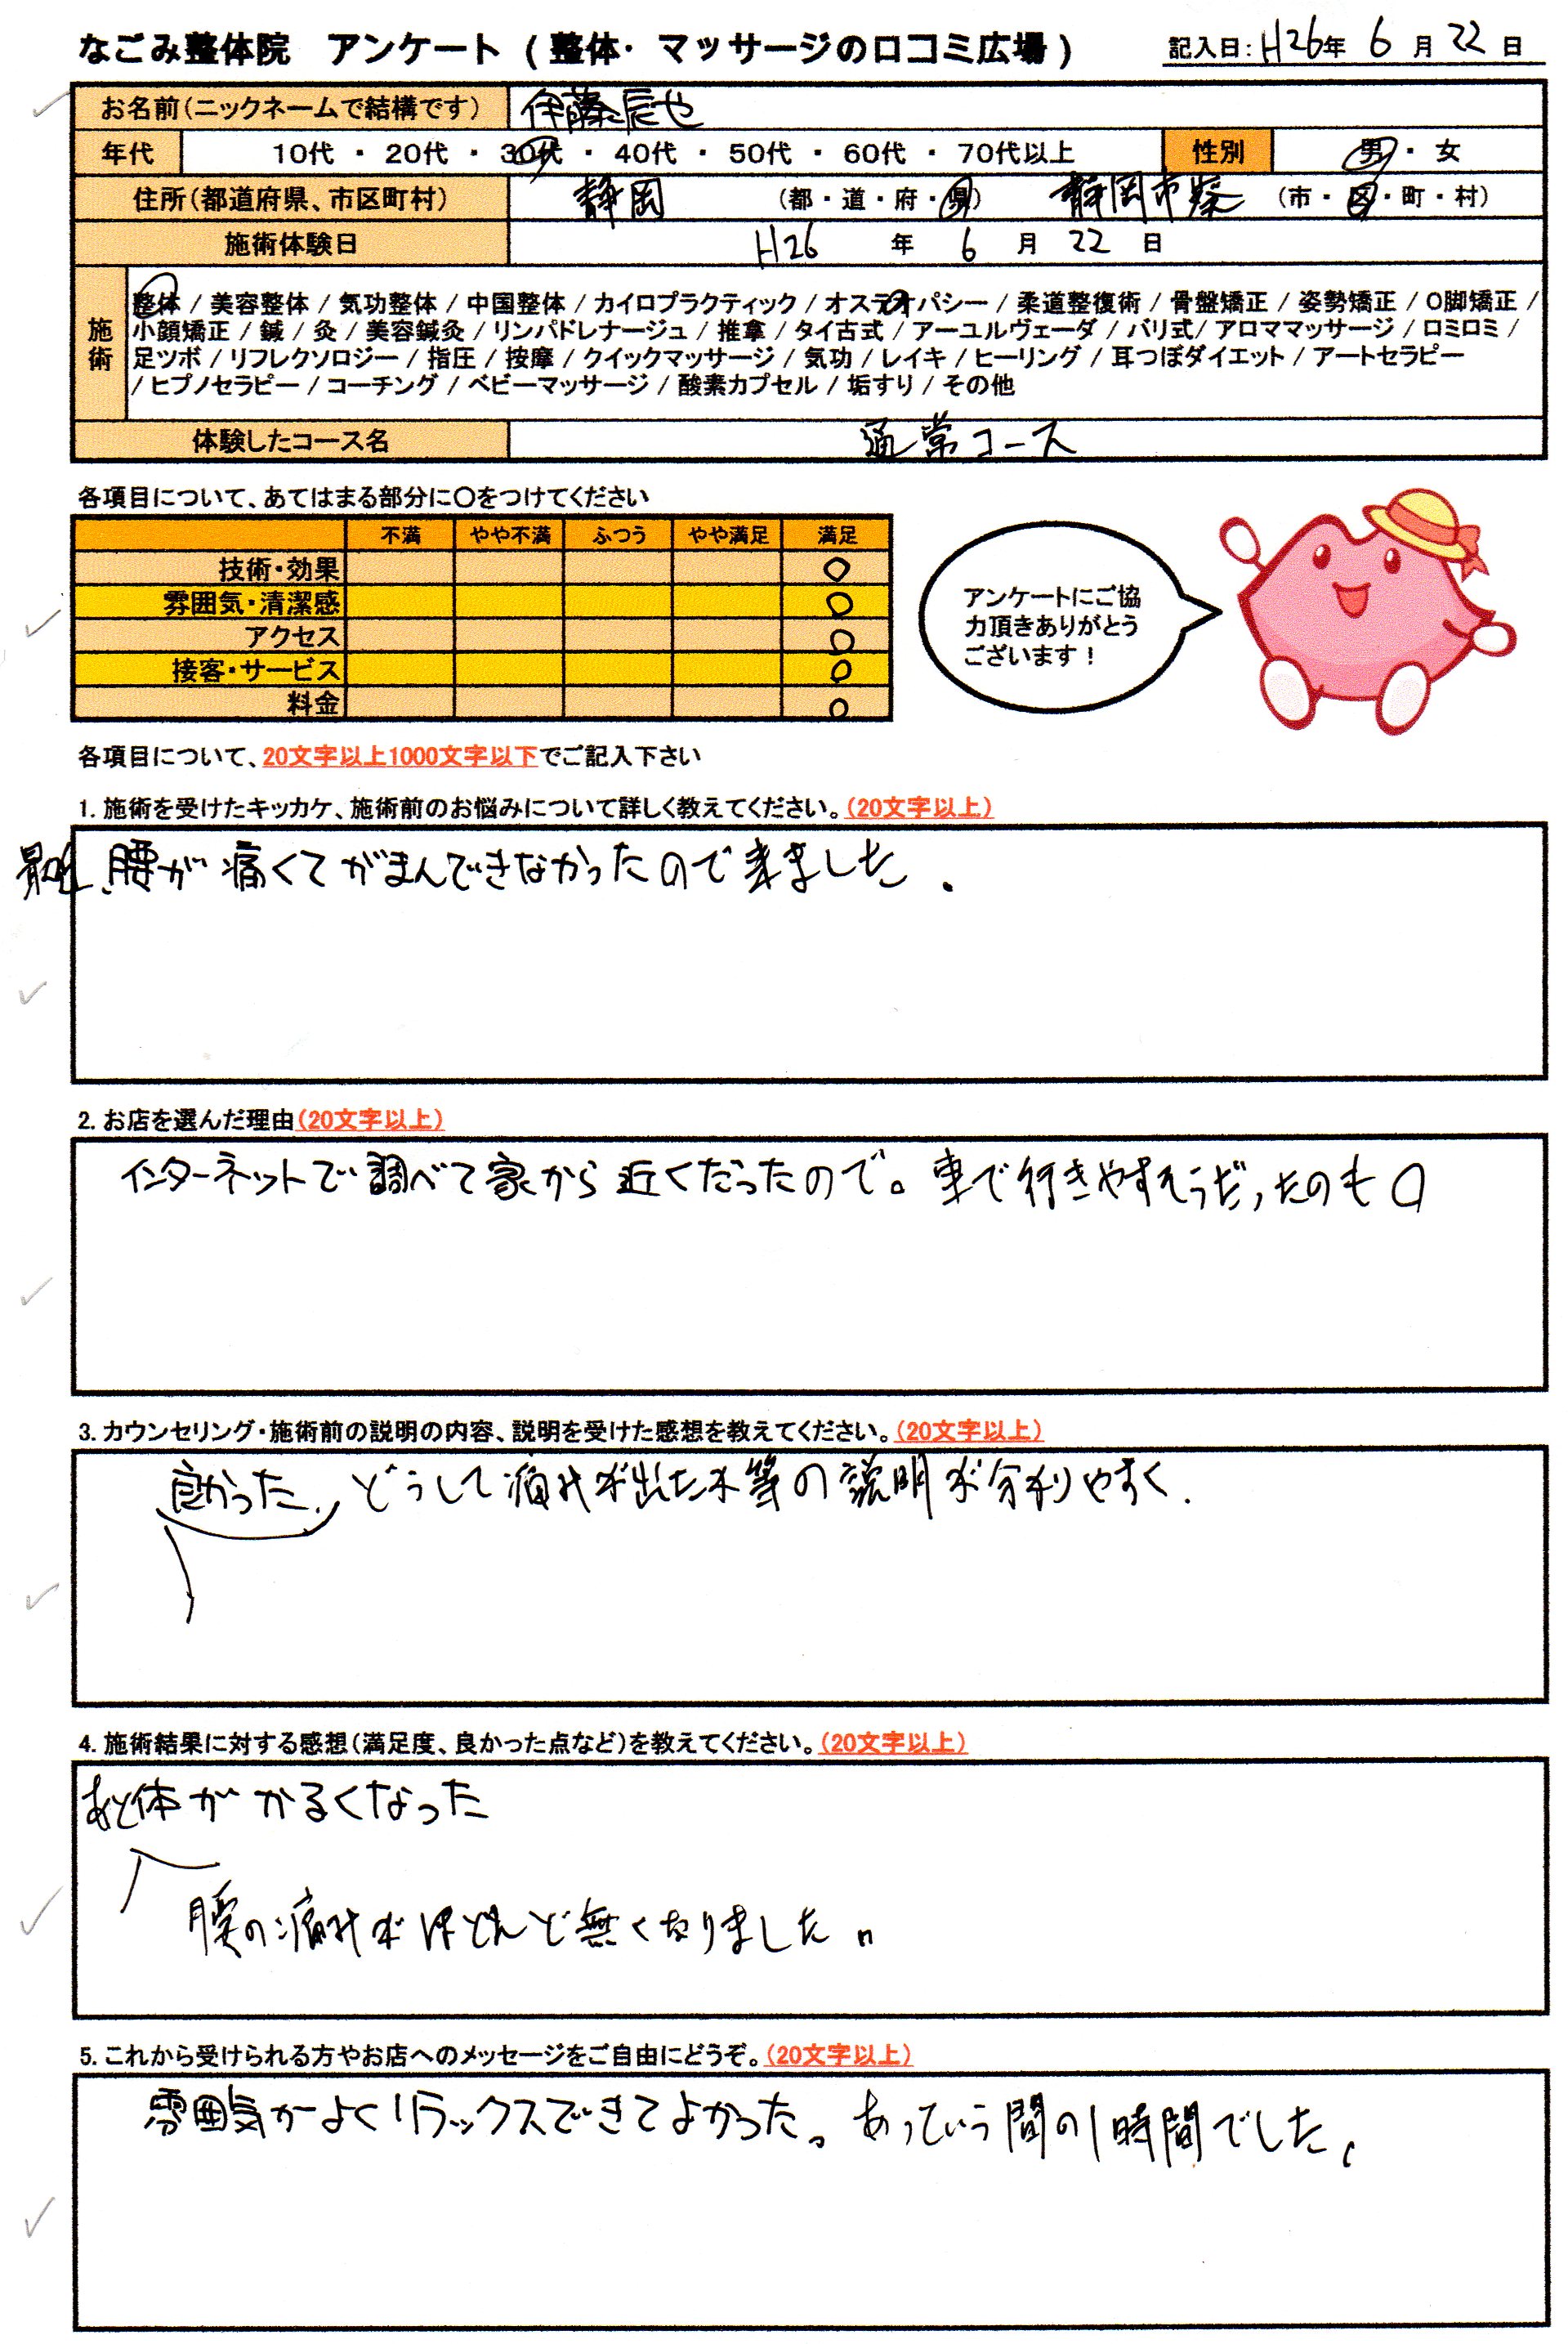 なごみ整体院 アンケート (整体・マッサージの口コミ広場)
記入日: H26年 6月 22日
お名前(ニックネームで結構です) 伊藤辰也
年代 10代 ・ 20代 ・ 30代 ・ 40代 ・ 50代 ・ 60代 ・ 70代以上 性別 男・女
住所(都道府県、市区町村) 静岡 (都・道・府・県) 静岡市葵 (市・区・町・村)
施術体験日 H26 年 6 月 22 日
施術
整体 / 美容整体 / 気功整体 / 中国整体 / カイロプラクティック / オステオパシー / 柔道整復術 / 骨盤矯正 / 姿勢矯正 / O脚矯正 /
小顔矯正 / 鍼 / 灸 / 美容鍼灸 / リンパドレナージュ / 推拿 / タイ古式 / アーユルヴェーダ / バリ式 / アロママッサージ / ロミロミ /
足ツボ / リフレクソロジー / 指圧 / 按摩 / クイックマッサージ / 気功 / レイキ / ヒーリング / 耳つぼダイエット / アートセラピー
/ ヒプノセラピー / コーチング / ベビーマッサージ / 酸素カプセル / 垢すり / その他
体験したコース名 通常コース
各項目について、あてはまる部分に〇をつけてください
不満 やや不満 ふつう やや満足 満足
技術・効果 〇
雰囲気・清潔感 〇
アクセス 〇
接客・サービス 〇
料金 〇
アンケートにご協
力頂きありがとう
ございます!
各項目について、20文字以上1000文字以下でご記入下さい
1. 施術を受けたキッカケ、施術前のお悩みについて詳しく教えてください。(20文字以上)
腰が痛くてがまんできなかったので来ました.
2. お店を選んだ理由(20文字以上)
インターネットで調べて家から近くだったので。車で行きやすそうだったのも
3. カウンセリング・施術前の説明の内容、説明を受けた感想を教えてください。(20文字以上)
良かった。どうして痛みが出たか等の説明が分かりやすく.
4. 施術結果に対する感想(満足度、良かった点など)を教えてください。(20文字以上)
あと体がかるくなった
腰の痛みがほとんど無くなりました。
5. これから受けられる方やお店へのメッセージをご自由にどうぞ。(20文字以上)
雰囲気がよくリラックスできてよかった。あっという間の1時間でした。